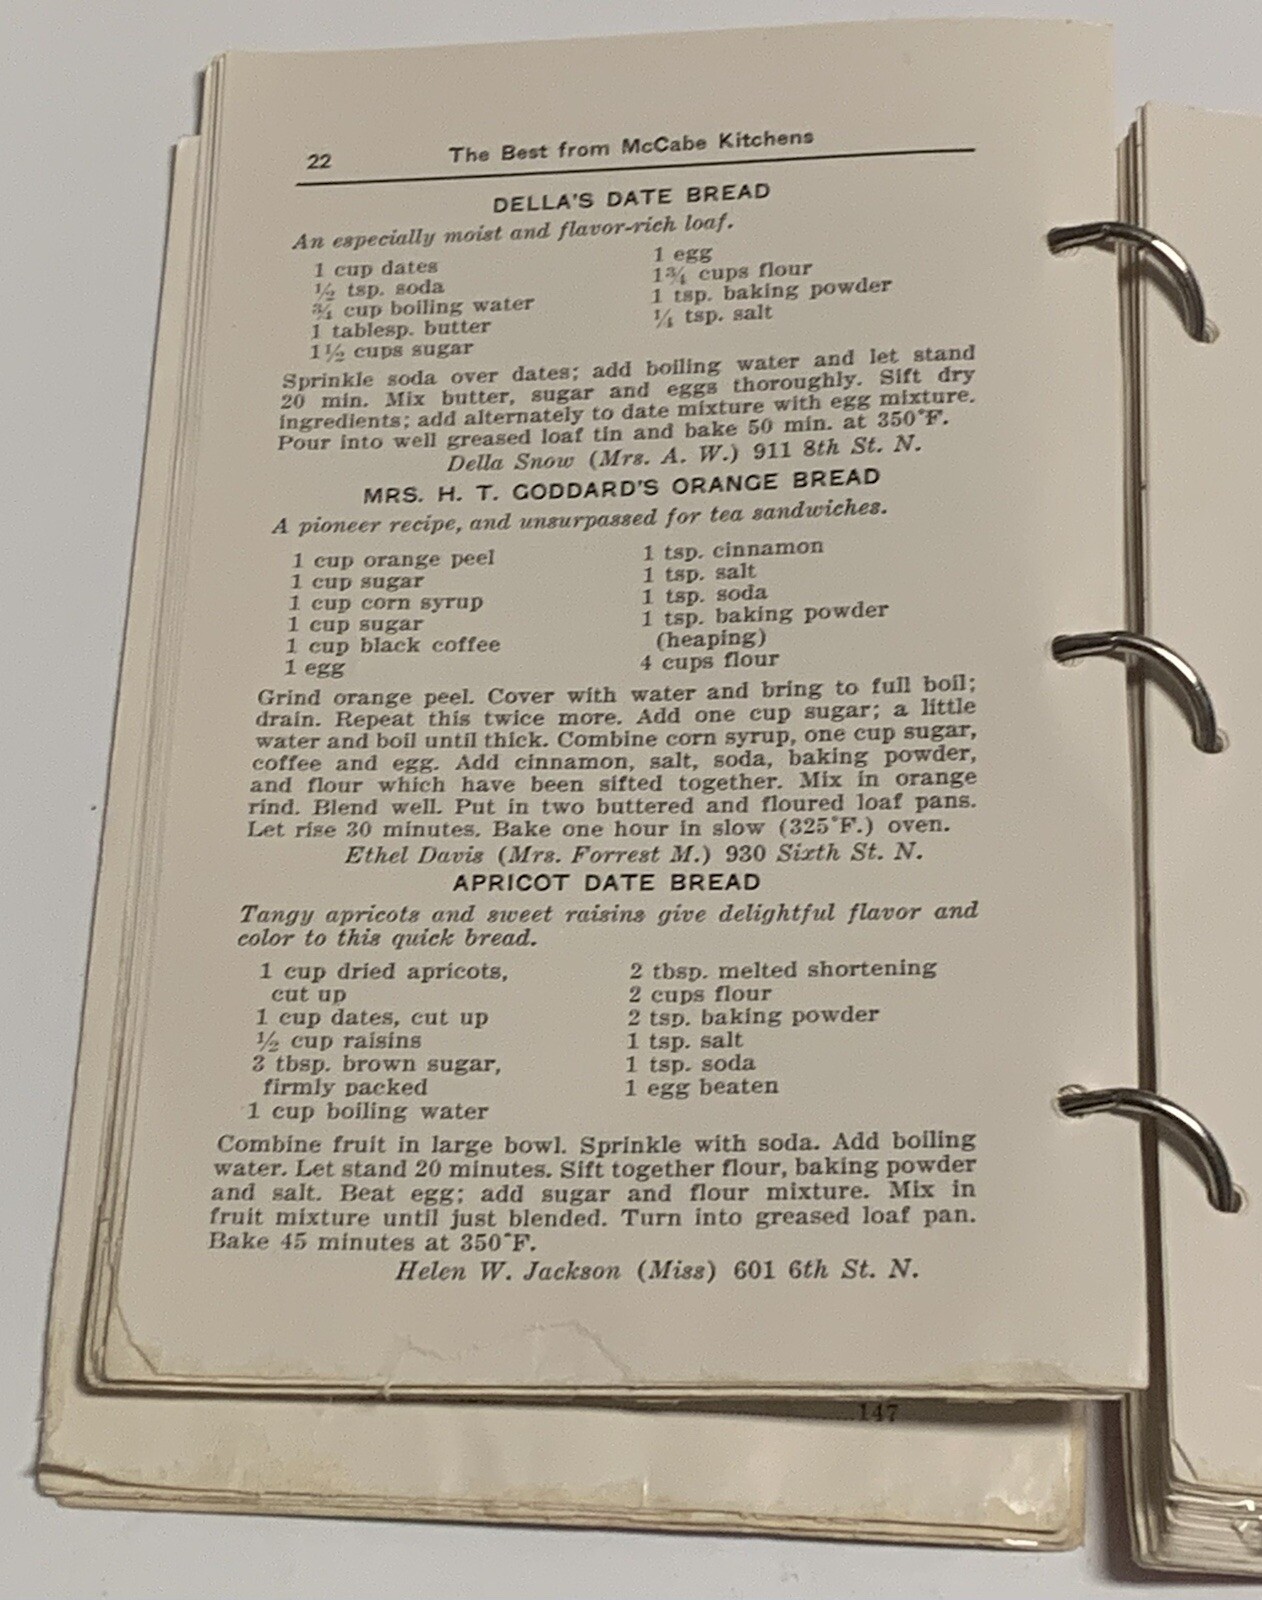 22
The Best from McCabe Kitchens
DELLA'S DATE BREAD
An especially moist and flavor-rich loaf.
1 cup dates
½ tsp. soda
¾ cup boiling water
1 tablesp. butter
1½ cups sugar
1 egg
1¾ cups flour
1 tsp. baking powder
¼ tsp. salt
Sprinkle soda over dates; add boiling water and let stand
20 min. Mix butter, sugar and eggs thoroughly. Sift dry
ingredients; add alternately to date mixture with egg mixture.
Pour into well greased loaf tin and bake 50 min. at 350°F.
Della Snow (Mrs. A. W.) 911 8th St. N.
MRS. H. T. GODDARD'S ORANGE BREAD
A pioneer recipe, and unsurpassed for tea sandwiches.
1 cup orange peel
1 cup sugar
1 cup corn syrup
1 cup sugar
1 cup black coffee
1 egg
1 tsp. cinnamon
1 tsp. salt
1 tsp. soda
1 tsp. baking powder
(heaping)
4 cups flour
Grind orange peel. Cover with water and bring to full boil;
drain. Repeat this twice more. Add one cup sugar; a little
water and boil until thick. Combine corn syrup, one cup sugar,
coffee and egg. Add cinnamon, salt, soda, baking powder,
and flour which have been sifted together. Mix in orange
rind. Blend well. Put in two buttered and floured loaf pans.
Let rise 30 minutes. Bake one hour in slow (325°F.) oven.
Ethel Davis (Mrs. Forrest M.) 930 Sixth St. N.
APRICOT DATE BREAD
Tangy apricots and sweet raisins give delightful flavor and
color to this quick bread.
1 cup dried apricots,
cut up
1 cup dates, cut up
½ cup raisins
3 tbsp. brown sugar,
firmly packed
1 cup boiling water
2 tbsp. melted shortening
2 cups flour
2 tsp. baking powder
1 tsp. salt
1 tsp. soda
1 egg beaten
Combine fruit in large bowl. Sprinkle with soda. Add boiling
water. Let stand 20 minutes. Sift together flour, baking powder
and salt. Beat egg; add sugar and flour mixture. Mix in
fruit mixture until just blended. Turn into greased loaf pan.
Bake 45 minutes at 350°F.
Helen W. Jackson (Miss) 601 6th St. N.
147